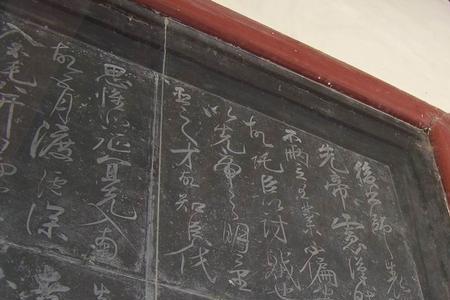 後出師表
先帝慮漢賊
不兩立王業不偏安
故託臣以討賊也
以先帝之明量
臣之才故知臣伐
思惟北征宜先入南
故五月渡瀘深
入不毛并日